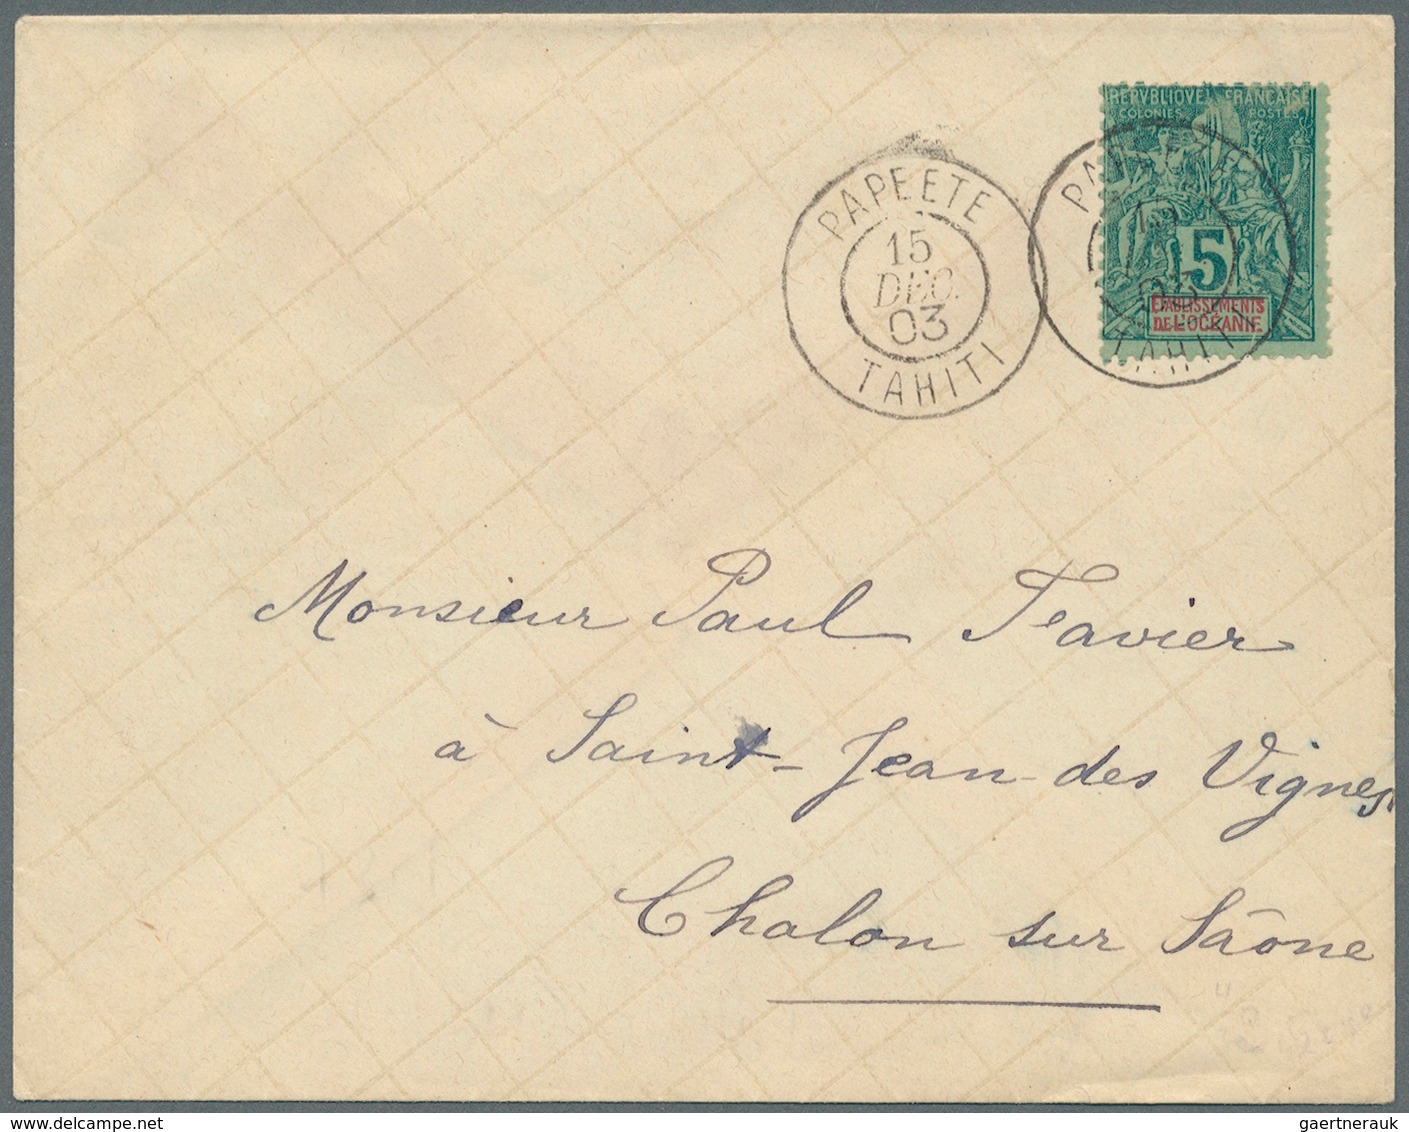 REPVBLIQVE FRANÇAISE
COLONIES POSTES
5
ETABLISSEMENTS
DE L'OCÉANIE
PAPEETE
15
DEC.
03
TAHITI
03
TAHITI
Monsieur Paul Favier
à Saint-Jean-des Vignes
Chalon sur Sâone
delcampe.net
gaertnerauk